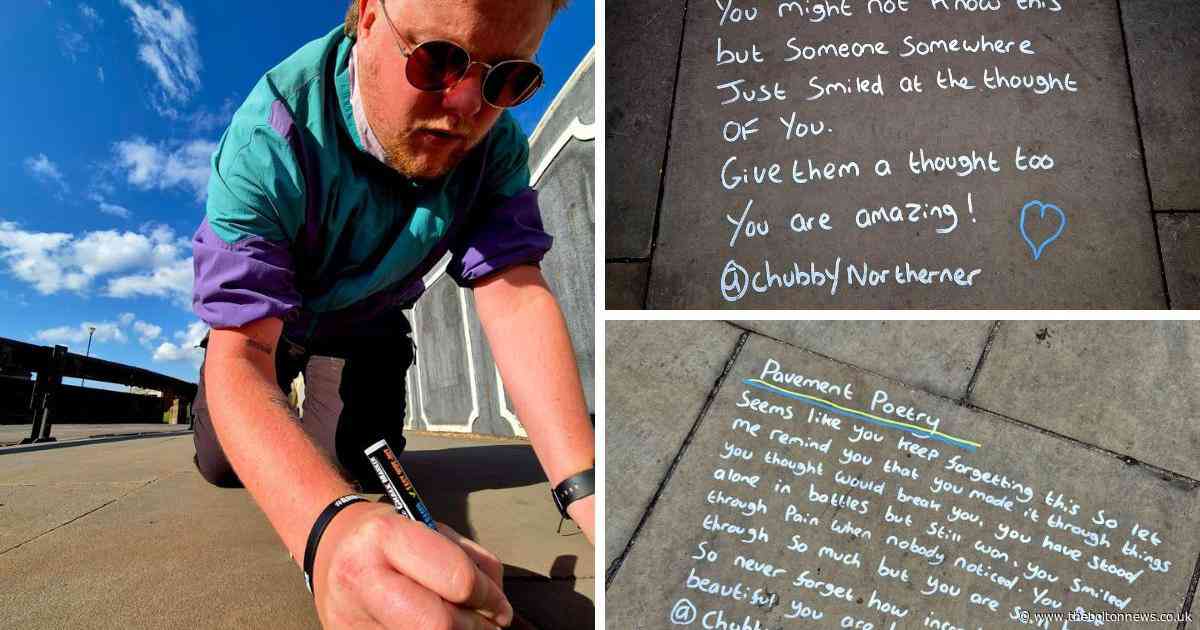 You might not know this
but Someone Somewhere
Just Smiled at the thought
OF You.
Give them a thought too
You are amazing!
@ChubbyNortherner
Pavement Poetry
Seems like you keep forgetting this so let
me remind you that you made it through things
you thought would break you, you have stood
alone in battles but still won, you smiled
through Pain when nobody noticed. You
through so much but you are
So never forget how
beautiful you are
@Chubb
CHALK MARKER
© www.theboltonnews.co.uk